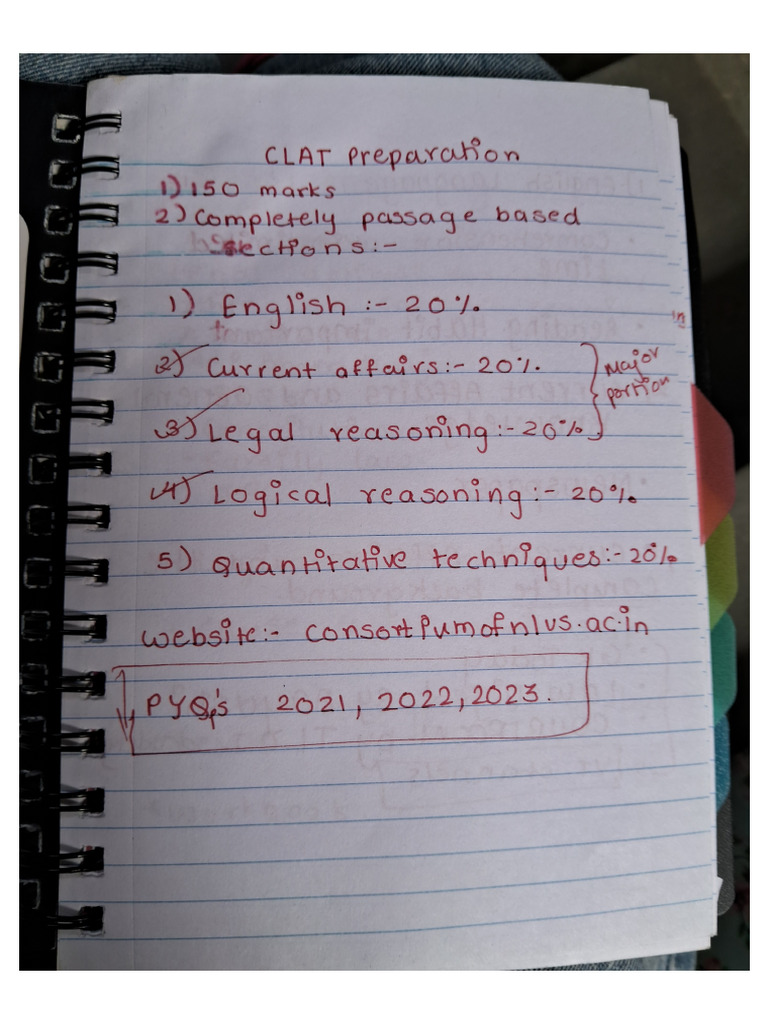 CLAT Preparation
1) 150 marks
2) Completely passage based
sections:-
1) English :- 20%.
2) Current affairs:- 20%.
Major portion
3) Legal reasoning:- 20%
4) Logical reasoning:- 20%
5) Quantitative techniques:- 20%
Website:- consortiumofnlus.ac.in
PYQ's 2021, 2022, 2023.